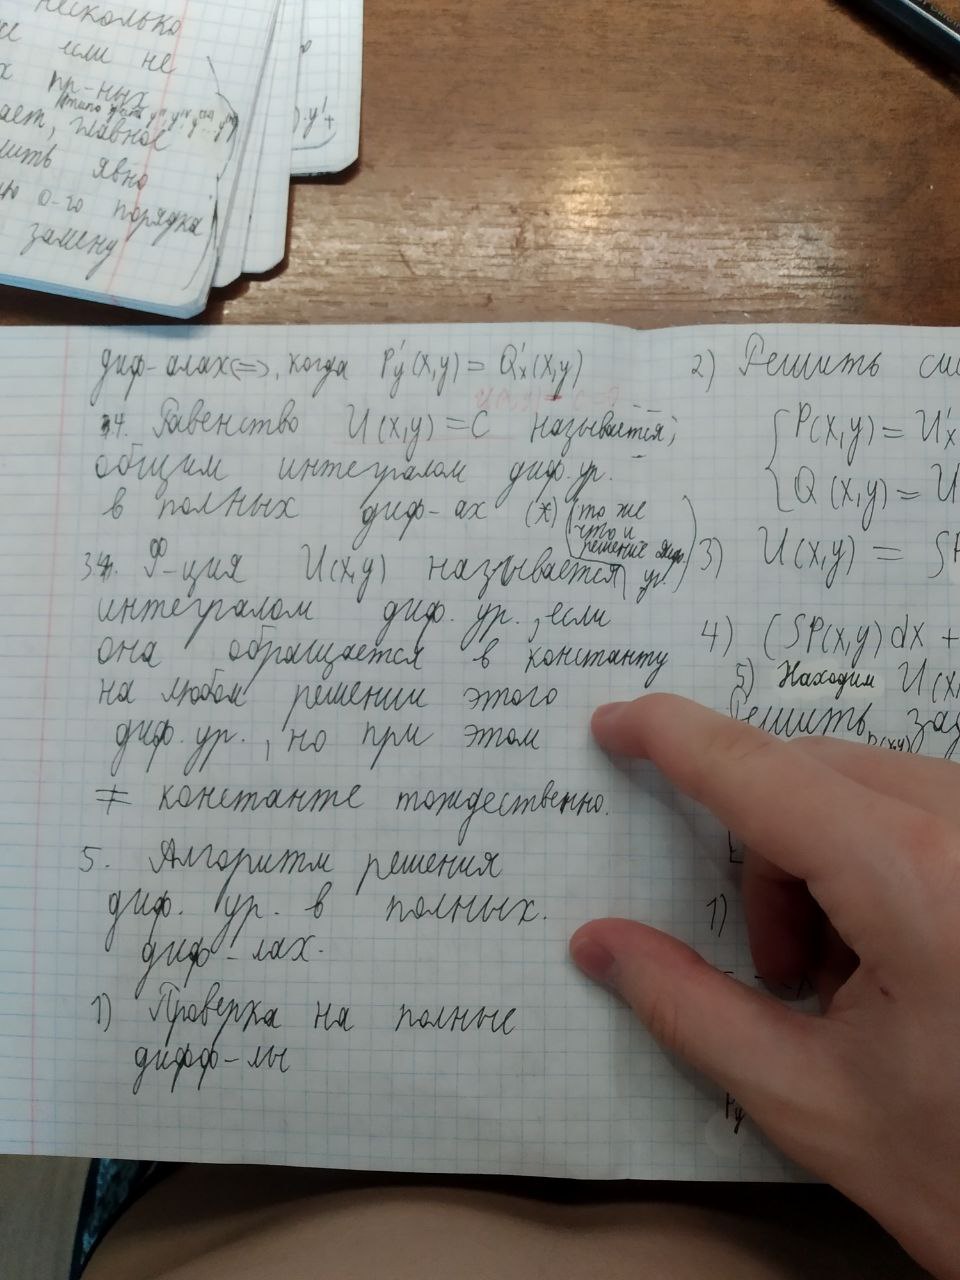 несколько
если не
пр-ных
главное
явно
0-го порядка
замену
).y'+
диф-алах(=), когда P'y(x,y) = Q'x(x,y)
34. Равенство U(x,y) = C называется
общим интегралом диф. ур.
в полных диф-ах (*) (то же
что и
решение диф.
ур.)
34. Ф-ция U(x,y) называется
интегралом диф. ур., если
она обращается в константу
на любом решении этого
диф. ур., но при этом
≠ константе тождественно.
5. Алгоритм решения
диф. ур. в полных
диф-лах.
1) Проверка на полные
дифф-лы
2) Решить
P(x,y) = U'x
Q(x,y) = U
3) U(x,y) = ∫P
4) (∫P(x,y)dx +
5) Находим U(x
Решить
P(x,y)
1)
Py